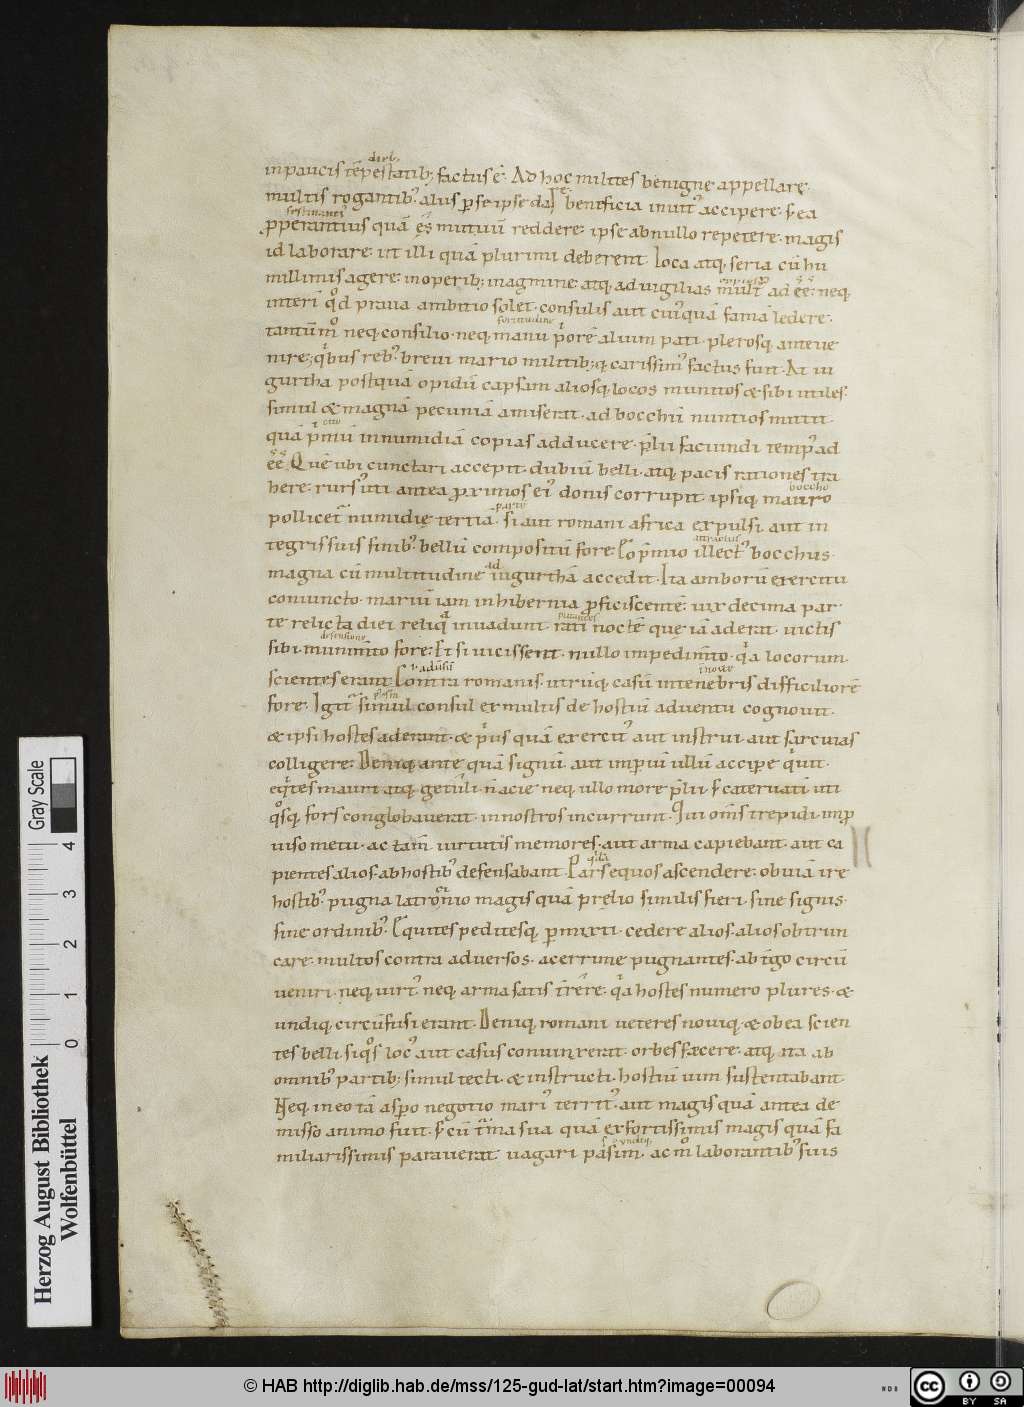 inpaucis tēpestatib; factus ē. Ad hoc milites benigne appellare.
multis rogantib; aliis p se ipse dare beneficia inuit accipere. s; ea
pperantius quā ęs mutuū reddere. ipse ab nullo repetere. magis
id laborare. ut illi quā plurimi deberent. Ioca atq; seria cū hu
millimis agere. in operib; in agmine. atq; ad uigilias mult ad ēē. neq;
interī qd praua ambitio solet. consulis aut cuiquā famā ledere.
tantūm neq; consilio. neq; manu priorē alium pati. plerosq; anteue
nire. quibus reb; breui mario militib; q; carissim' factus sunt. At iu
gurtha postquā opidū capsam aliosq; locos munitos & sibi utiles.
simul & magnā pecuniā amiserat. ad bocchū nuntios mittit.
quā primū in numidiā copias adducere. prelii faciundi temp' ad
ēē. Quē ubi cunctari accepit. dubiū belli. atq; pacis rationes tra
here. rursus uti antea proximos ei' donis corrupit. ipsiq; mauro
pollicet numidię tertiā. si aut romani africa expulsi. aut in
tegris suis finib; bellū compositū fore. Eo premio illect' bocchus.
magna cū multitudine iugurthā accedit. Ita amborū exercitu
coniuncto. mariū iam in hibernia proficiscentē. uix decima par
te relicta diei reliqua inuadunt. rati noctē que iā aderat. uictis
sibi munimto fore. Et si uicissent. nullo impedimto. qa locorum
scientes erant. Contra romanis. utrūq; casū in tenebris difficiliorē
fore. Igit simul consul ex multis de hostiū aduentu cognouit.
& ipsi hostes aderant. & prius quā exercit' aut instrui. aut sarcinas
colligere. Deniq; ante quā signū. aut imperiū ullū accipe quiuit.
eqites mauri atq; getuli. n acie neq; ullo more prelii. s; cateruati. uti
qosq; fors conglobauerat. in nostros incurrunt. Qui oms trepidi. imp
uiso metu. ac tam uirtutis memores. aut arma capiebant. aut ca
pientes alios ab hostib; defensabant. Pars equos ascendere. obuiā ire
hostib; pugna latrocinio magis quā prelio similis fieri. sine signis.
sine ordinib; Equites peditesq; permixti. cedere alios. alios obtrun
care. multos contra aduersos. acerrime pugnantes. ab tgo circū
ueniri. neq; uirt' neq; arma satis tegere. qa hostes numero plures. &
undiq; circūfusi erant. Deniq; romani ueteres nouiq; & ob ea scien
tes belli. siqos loc' aut casus coniunxerat. orbes fæcere. atq; ita ab
omnib; partib; simul tecti. & instructi. hostiū uim sustentabant.
Neq; in eo tā aspo negotio mari' territ' aut magis quā antea de
misso animo fuit. s; cū turma sua quā ex fortissimis magis quā fa
miliarissimis parauerat uagari passim. ac m laborantib; suis
Herzog August Bibliothek
Wolfenbüttel
0 1 2 3 4
Gray Scale
© HAB http://diglib.hab.de/mss/125-gud-lat/start.htm?image=00094
cc BY SA